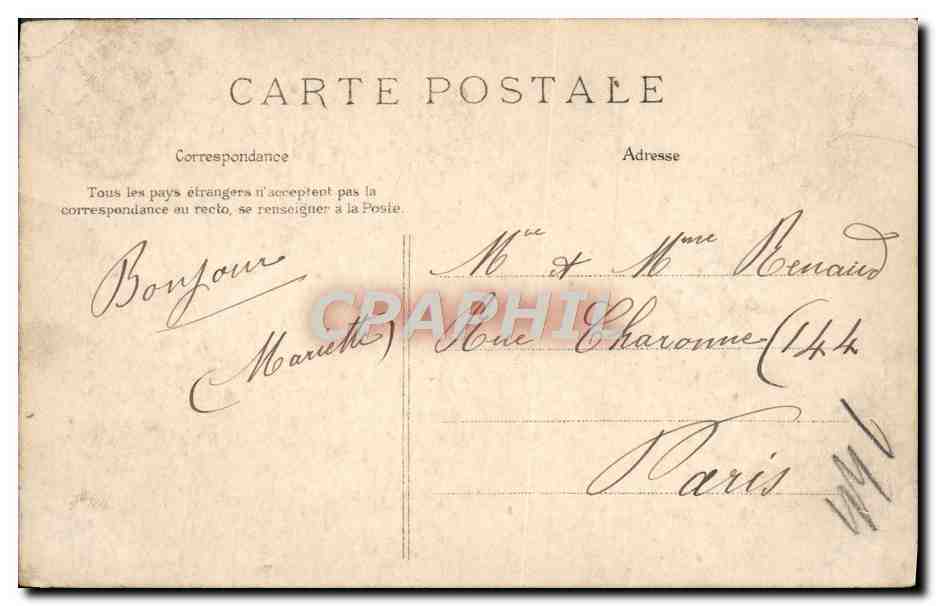 CARTE POSTALE
Correspondance
Tous les pays étrangers n'acceptent pas la
correspondance au recto, se renseigner à la Poste.
Bonjour
(Mariette)
Adresse
et Mme Renaud
Rue Charonne (144
Paris
CPAPHIL